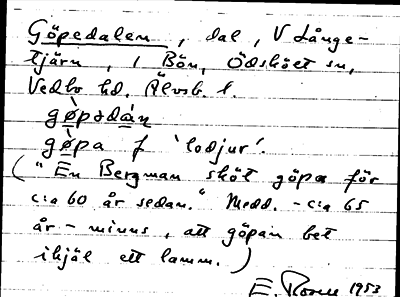 Göpedalen, dal, V Långe-
tjärn, i Bön, Ödskölt sn,
Vedbo hd. Älvsb. l.
gø̀pədán
gø̀pa f 'lodjur'.
("En Bergman sköt göpa för
c:a 60 år sedan." Medd. - c:a 65
år - minns, att göpan bet
ihjäl ett lamm.)
E. Rosell 1953